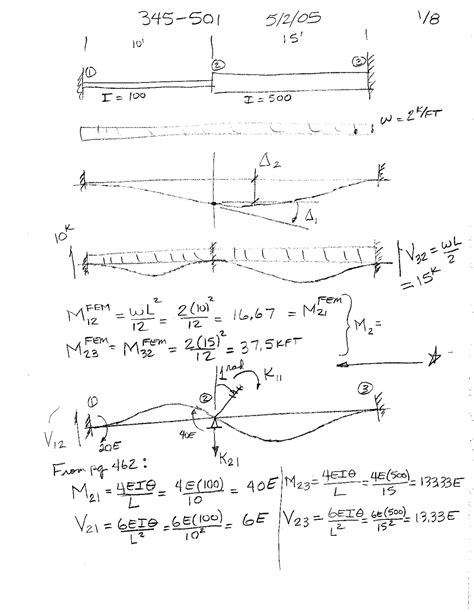 345-501 5/2/05 1/8
10' 15'
① ② ③
I = 100 I = 500
w = 2 K/FT
Δ2
Δ1
10K
V32 = wL/2 = 15K
M12^FEM = wL²/12 = 2(10)²/12 = 16.67 = M21^FEM
M23^FEM = M32^FEM = 2(15)²/12 = 37.5 KFT
} M2 =
1 rad K11
① ② ③
V12 20E 40E
K21
From pg 462:
M21 = 4EIθ/L = 4E(100)/10 = 40E
M23 = 4EIθ/L = 4E(500)/15 = 133.33E
V21 = 6EIθ/L² = 6E(100)/10² = 6E
V23 = 6EIθ/L² = 6E(500)/15² = 13.33E